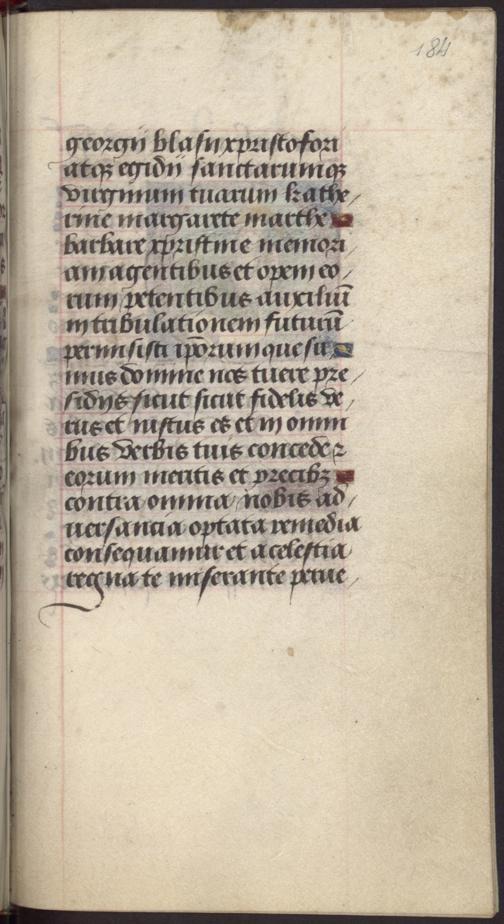 184
georgii blasii xpristofori
atqz egidii sanctarumqz
virginum tuarum kathe
rine margarete marthe
barbare xpristine memori
am agentibus et opem eo
rum petentibus auxiliū
in tribulationem futurū
permisisti ipōrum quesu
mus domine nos tuere pre
sidiis sicut sicut fidelis ve
rus et iustus es et in omni
bus verbis tuis concede
eorum meritis et precibz
contra omnia nobis ad
versantia optata remedia
consequamur et a celestia
regna te miserante perue